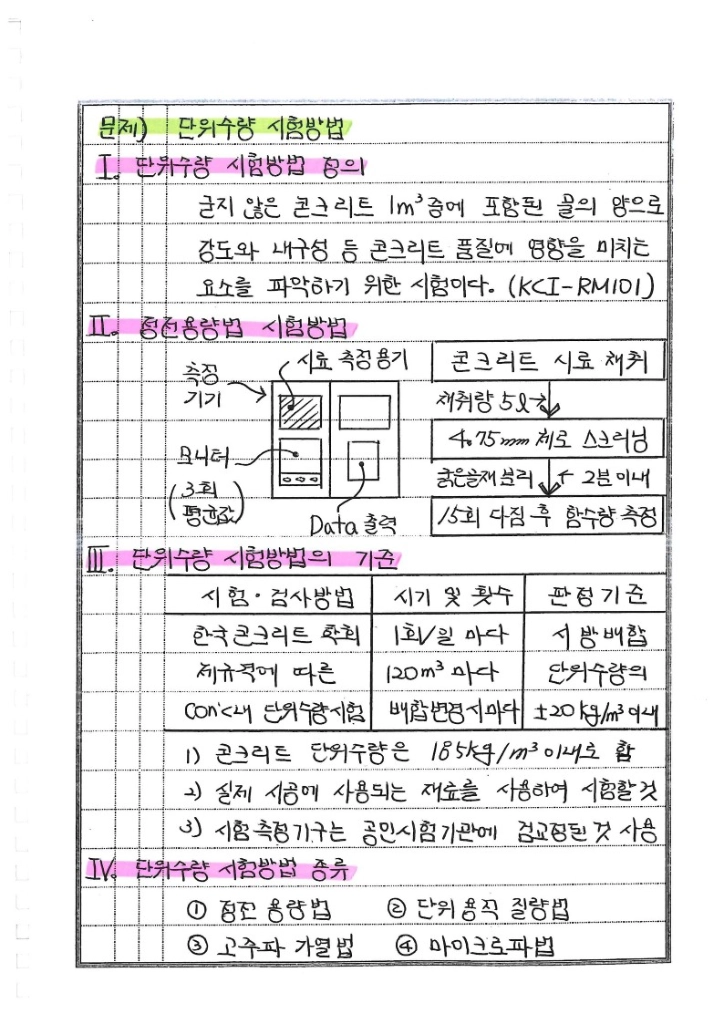 문제) 단위수량 시험방법
I. 단위수량 시험방법 정의
굳지 않은 콘크리트 1m³중에 포함된 물의 양으로
강도와 내구성 등 콘크리트 품질에 영향을 미치는
요소를 파악하기 위한 시험이다. (KCI-RM101)
II. 정전용량법 시험방법
시료 측정용기
측정
기기
모니터
(3회
평균값)
Data 출력
콘크리트 시료 채취
채취량 5ℓ→
4.75mm 체로 스크리닝
굵은골재 분리 ← 2분이내
15회 다짐 후 함수량 측정
III. 단위수량 시험방법의 기준
시험·검사방법 시기 및 횟수 판정기준
한국콘크리트 학회 1회/일 마다 시방배합
제규격에 따른 120m³ 마다 단위수량의
con'c내 단위수량시험 배합변경시마다 ±20kg/m³이내
1) 콘크리트 단위수량은 185kg/m³이내로 함
2) 실제 시공에 사용되는 재료를 사용하여 시험할것
3) 시험측정기구는 공인시험기관에 검교정된 것 사용
IV. 단위수량 시험방법 종류
① 정전 용량법 ② 단위용적 질량법
③ 고주파 가열법 ④ 마이크로파법